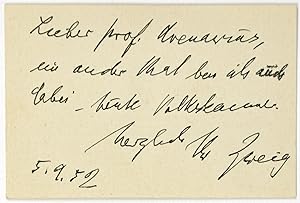 Lieber Prof. Avenarius,
ein ander Mal bin ich auch
dabei – heute Volkskammer.
Herzlich Ihr Zweig
5.9.52